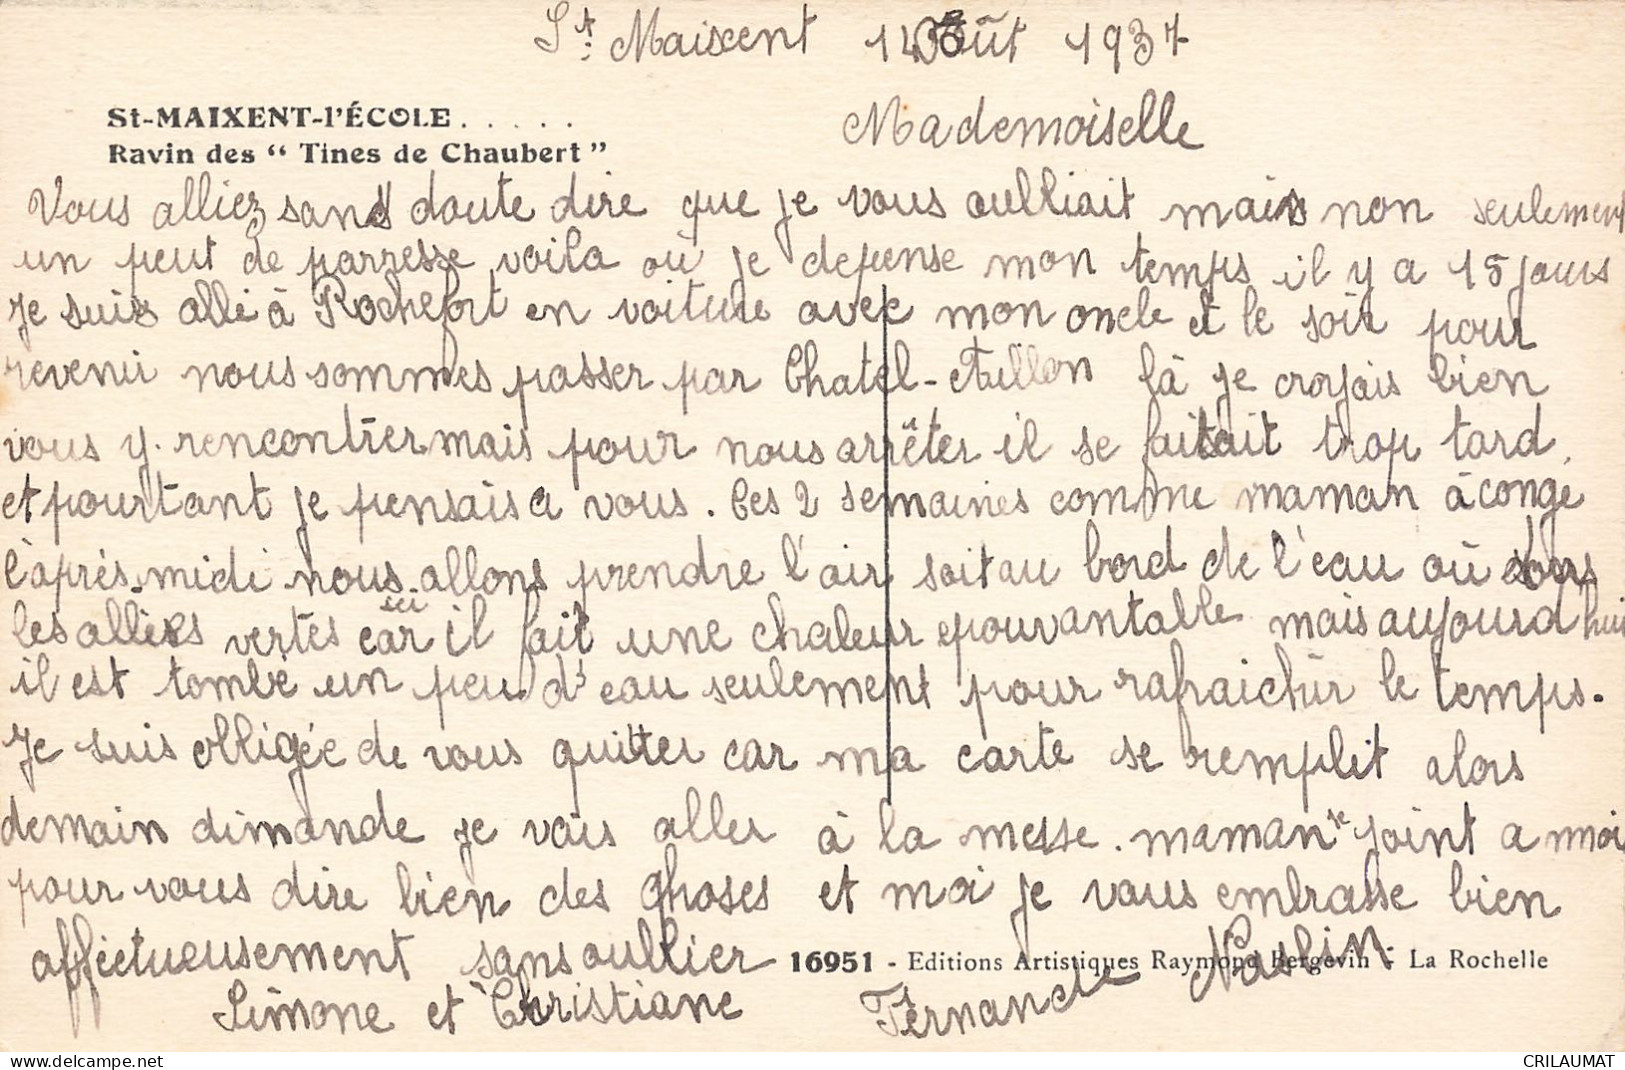 St Maixent 14 Août 1937
St-MAIXENT-l'ÉCOLE . . . . .
Ravin des “ Tines de Chaubert ”
Mademoiselle
Vous alliez sans doute dire que je vous oulliait mais non seulement
un peut de parresse voila ou je depense mon temps il y a 15 jours
Je suis allé à Rochefort en voiture avec mon oncle et le soir pour
revenir nous sommes passer par Chatel-Aillon là je croyais bien
vous y rencontrer mais pour nous arrêter il se faisait trop tard,
et pourtant je pensais a vous. Ces 2 semaines comme maman à conge
l'après-midi nous allons prendre l'air soit au bord de l'eau où dans
les alliés vertes car ici il fait une chaleur epouvantable mais aujourd'hui
il est tombé un peu d'eau seulement pour rafraichir le temps.
Je suis obligée de vous quitter car ma carte se remplit alors
demain dimande je vais aller à la messe. maman se joint a moi
pour vous dire bien des choses et moi je vous embrasse bien
affectueusement sans oullier
16951 - Editions Artistiques Raymond Bergevin - La Rochelle
Simone et Christiane Fernande
CRILAUMAT